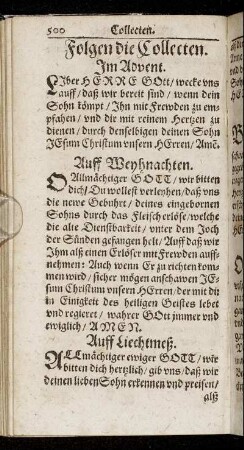 500 Collecten.
Folgen die Collecten.
Im Advent.
LIber HERRE GOtt/ wecke vns
auff/ daß wir bereit sind/ wenn dein
Sohn kömpt/ Ihn mit Frewden zu em-
pfahen/ vnd dir mit reinem Hertzen zu
dienen/ durch denselbigen deinen Sohn
JEsum Christum vnsern HErren/ Amē.
Auff Weyhnachten.
O Allmächtiger GOTT/ wir bitten
dich/ Du wollest verleyhen/ daß vns
die newe Geburt/ deines eingebornen
Sohns durch das Fleisch erlöse/ welche
die alte Dienstbarkeit/ vnter dem Joch
der Sünden gefangen helt/ Auff daß wir
Ihm alß einen Erlöser mit Frewden auff-
nehmen: Auch wenn Er zu richten kom-
men wird/ sicher mögen anschawen JE-
sum Christum vnsern HErren/ der mit dir
in Einigkeit des heiligen Geistes lebet
vnd regieret/ wahrer GOtt jmmer vnd
ewiglich/ AMEN.
Auff Liechtmeß.
ALLmächtiger ewiger GOTT/ wir
bitten dich hertzlich/ gib vns/ daß wir
deinen lieben Sohn erkennen vnd preisen/
alß